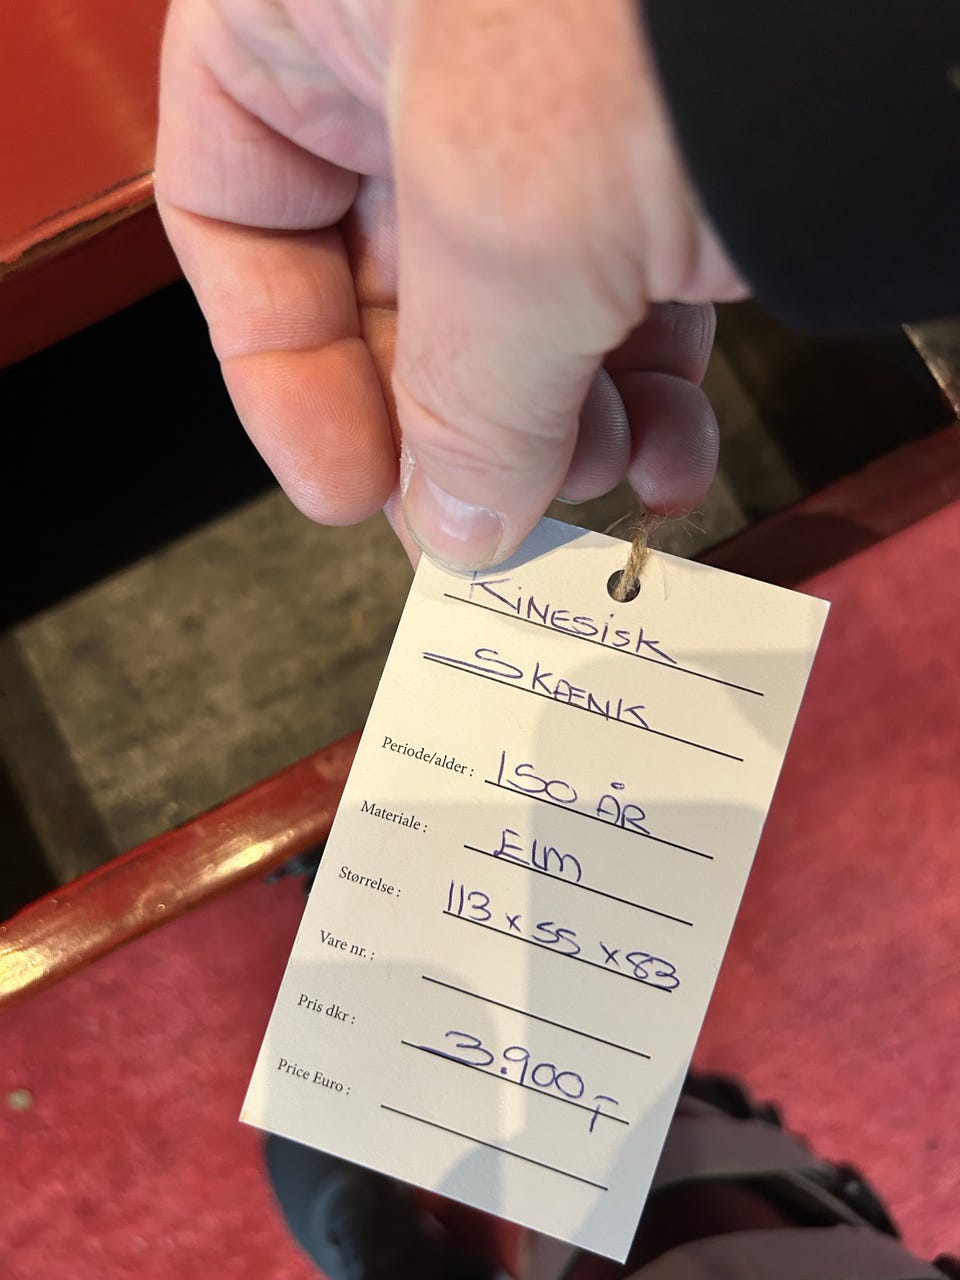 KINESISK
SKÆNK
Periode/alder : 150 ÅR
Materiale : ELM
Størrelse : 113 x 55 x 83
Vare nr. :
Pris dkr : 3.900,-
Price Euro :